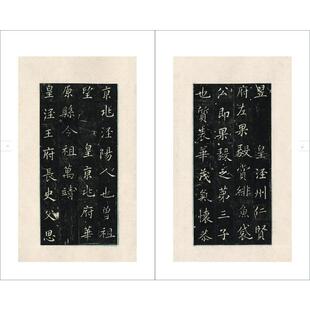 昱　皇涇州仁賢
府左果毅賞緋魚袋
公即果毅之第三子
也質表華茂氣懷恭
京兆涇陽人也曾祖
堅　皇京兆府華
原縣令祖萬詩
皇涇王府長史父思